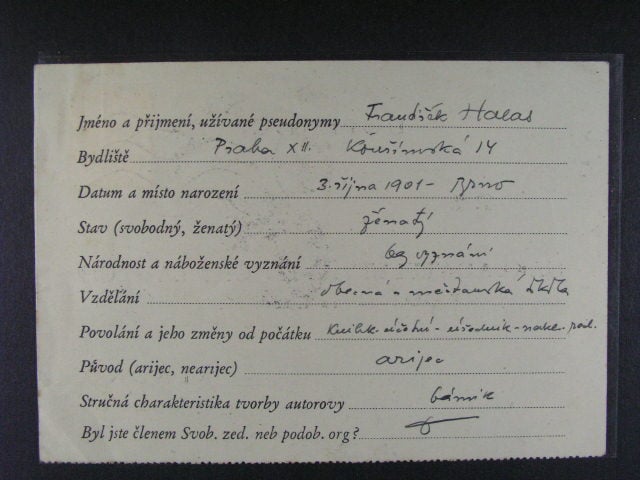 Jméno a přijmení, užívané pseudonymy František Halas
Bydliště Praha XII. Kouřimská 14
Datum a místo narození 3. října 1901 - Brno
Stav (svobodný, ženatý) ženatý
Národnost a náboženské vyznání bez vyznání
Vzdělání obecná a měšťanská škola
Povolání a jeho změny od počátku knihk. účetní - úředník - nakl. red.
Původ (arijec, nearijec) arijec
Stručná charakteristika tvorby autorovy básník
Byl jste členem Svob. zed. neb podob. org?